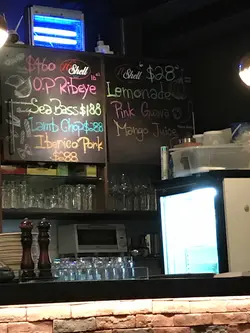 $460 Shell
O.P Ribeye
Sea Bass $188
Lamb Chop $288
Iberico Pork
$288
Shell $28
Lemonade
Pink Guava
Mango Juice